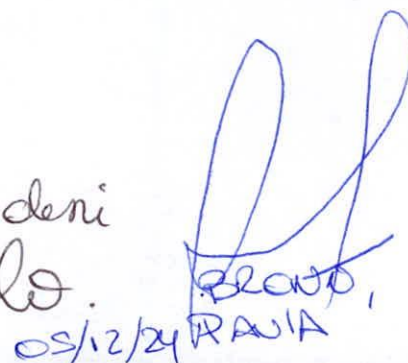 deni
lo.
BRONI,
05/12/24 PAVIA